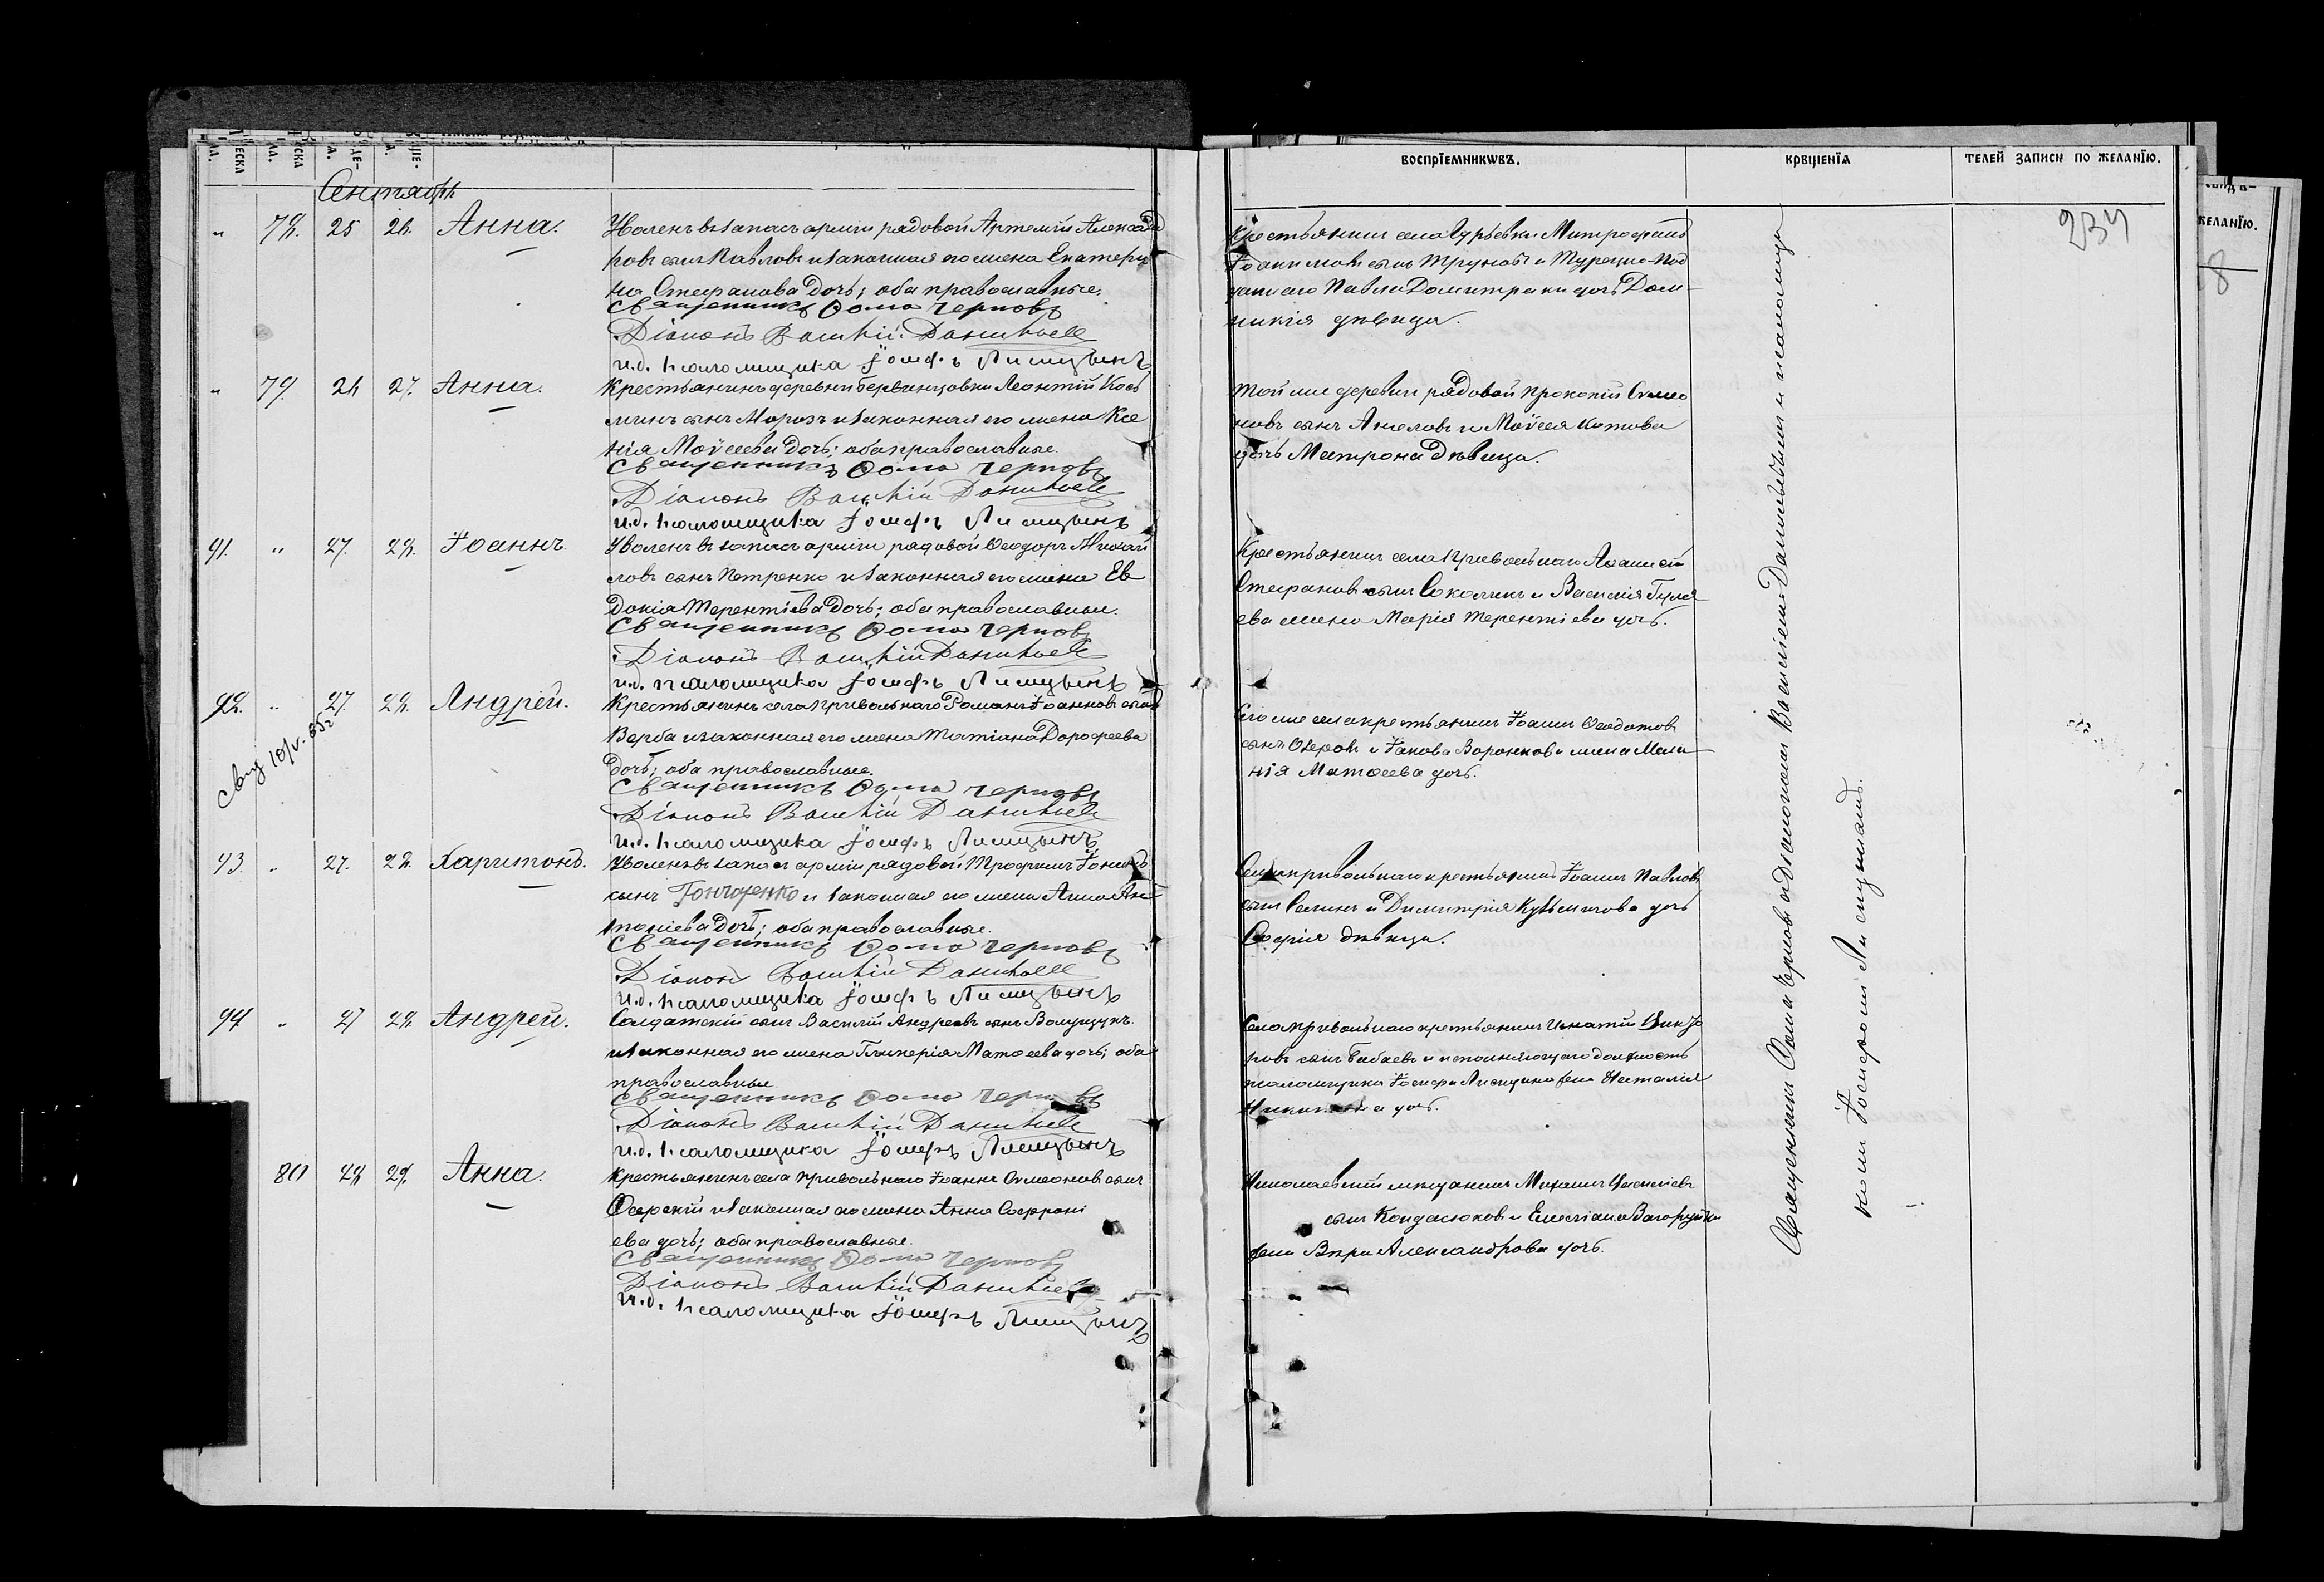 воспрїемникѡвъ.
крещенїя
телей записи по желанїю.
желанїю.
Сентябрь
234
8
" 78. 25 26. Анна.
Уволенъ въ запасъ арміи рядовой Артемій Александ
ровъ сынъ Павловъ и законная его жена Екатери
на Стефанова дочь; оба православные.
Священникъ Ѳома Черновъ
Діаконъ Василій Данильевъ
и.д. псаломщика Іосифъ Лисицынъ
Крестьянинъ села Гурьевки Митрофанъ
Іоакимовъ сынъ Труновъ и Турецко-под
даннаго Павла Домитраки дочь Дом-
никія дѣвица.
" 79. 26 27. Анна.
Крестьянинъ деревни Гервинцовки Леонтій Кось
минъ сынъ Морозъ и законная его жена Ксе
нія Моѵсеева дочь; оба православные.
Священникъ Ѳома Черновъ
Діаконъ Василій Данильевъ
и.д. псаломщика Іосифъ Лисицынъ
Той же деревни рядовой Прокопій Симео
новъ сынъ Ангеловъ и Моѵсея Котова
дочь Матрона дѣвица.
91. " 27. 28. Іоаннъ
Уволенъ въ запасъ арміи рядовой Ѳеодоръ Михай
ловъ сынъ Петренко и законная его жена Ев
докія Терентіева дочь; оба православные.
Священникъ Ѳома Черновъ
Діаконъ Василій Данильевъ
и.д. псаломщика Іосифъ Лисицынъ
Крестьянинъ села Привольнаго
Стефановъ сынъ Соколинъ и Василія Гуля
ева жена Марія Терентіева дочь.
92. " 27. 28. Андрей.
Крестьянинъ села Привольнаго Романъ Іоанновъ сынъ
Верба и законная его жена Татіана Дороѳеева
дочь; оба православные.
Священникъ Ѳома Черновъ
Діаконъ Василій Данильевъ
и.д. псаломщика Іосифъ Лисицынъ
Того же села крестьянинъ Іоаннъ Ѳеодотовъ
сынъ Озеровъ и Іакова Воронкова жена Мела
нія Матѳеева дочь.
93. " 27. 28. Харитонъ.
Уволенъ въ запасъ арміи рядовой Трофимъ
сынъ Гончаренко и законная его жена Анна Ан
тоніева дочь; оба православные.
Священникъ Ѳома Черновъ
Діаконъ Василій Данильевъ
и.д. псаломщика Іосифъ Лисицынъ
Села Привольнаго крестьянинъ Іоаннъ Павловъ
сынъ Селинъ и Димитрія Кузьмичова дочь
Софія дѣвица.
94 " 27 28. Андрей.
Солдатскій сынъ Василій Андреевъ сынъ
и законная его жена Гликерія Матѳеева дочь; оба
православные
Священникъ Ѳома Черновъ
Діаконъ Василій Данильевъ
и.д. псаломщика Іосифъ Лисицынъ
Села Привольнаго крестьянинъ Игнатій
ровъ сынъ Бабаевъ и исполняющаго должность
псаломщика Іосифа Лисицына жена Наталія
дочь.
80 28 29. Анна.
Крестьянинъ села Привольнаго Іоаннъ Симеоновъ сынъ
Озерскій и законная его жена Анна Софроні
ева дочь; оба православные.
Священникъ Ѳома Черновъ
Діаконъ Василій Данильевъ
и.д. псаломщика Іосифъ Лисицынъ
Николаевскій мѣщанинъ Михаилъ
сынъ Кондасюковъ и Емеліана
жена Вѣра Александрова дочь.
Священникъ Ѳома Черновъ и Діакономъ Василіемъ Данильевымъ и псаломщи
комъ Іосифомъ Лисицынымъ.